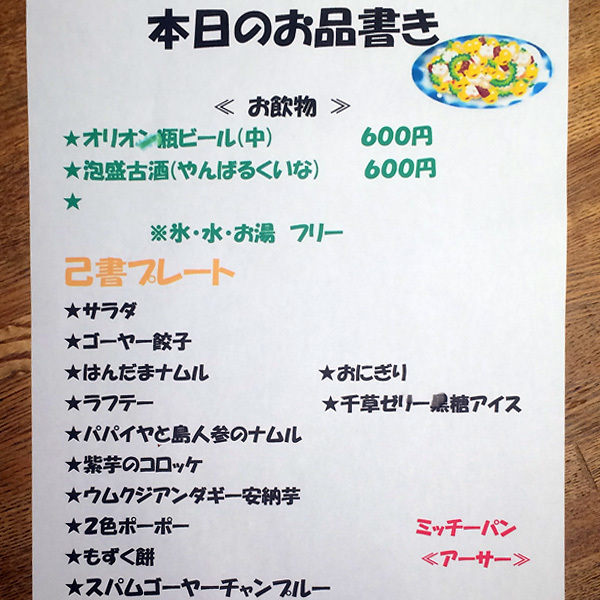 本日のお品書き
≪ お飲物 ≫
★オリオン瓶ビール(中) 600円
★泡盛古酒(やんばるくいな) 600円
★
※氷・水・お湯 フリー
己書プレート
★サラダ
★ゴーヤー餃子
★はんだまナムル ★おにぎり
★ラフテー ★千草ゼリー黒糖アイス
★パパイヤと島人参のナムル
★紫芋のコロッケ
★ウムクジアンダギー安納芋
★2色ポーポー ミッチーパン
★もずく餅 ≪アーサー≫
★スパムゴーヤーチャンプルー